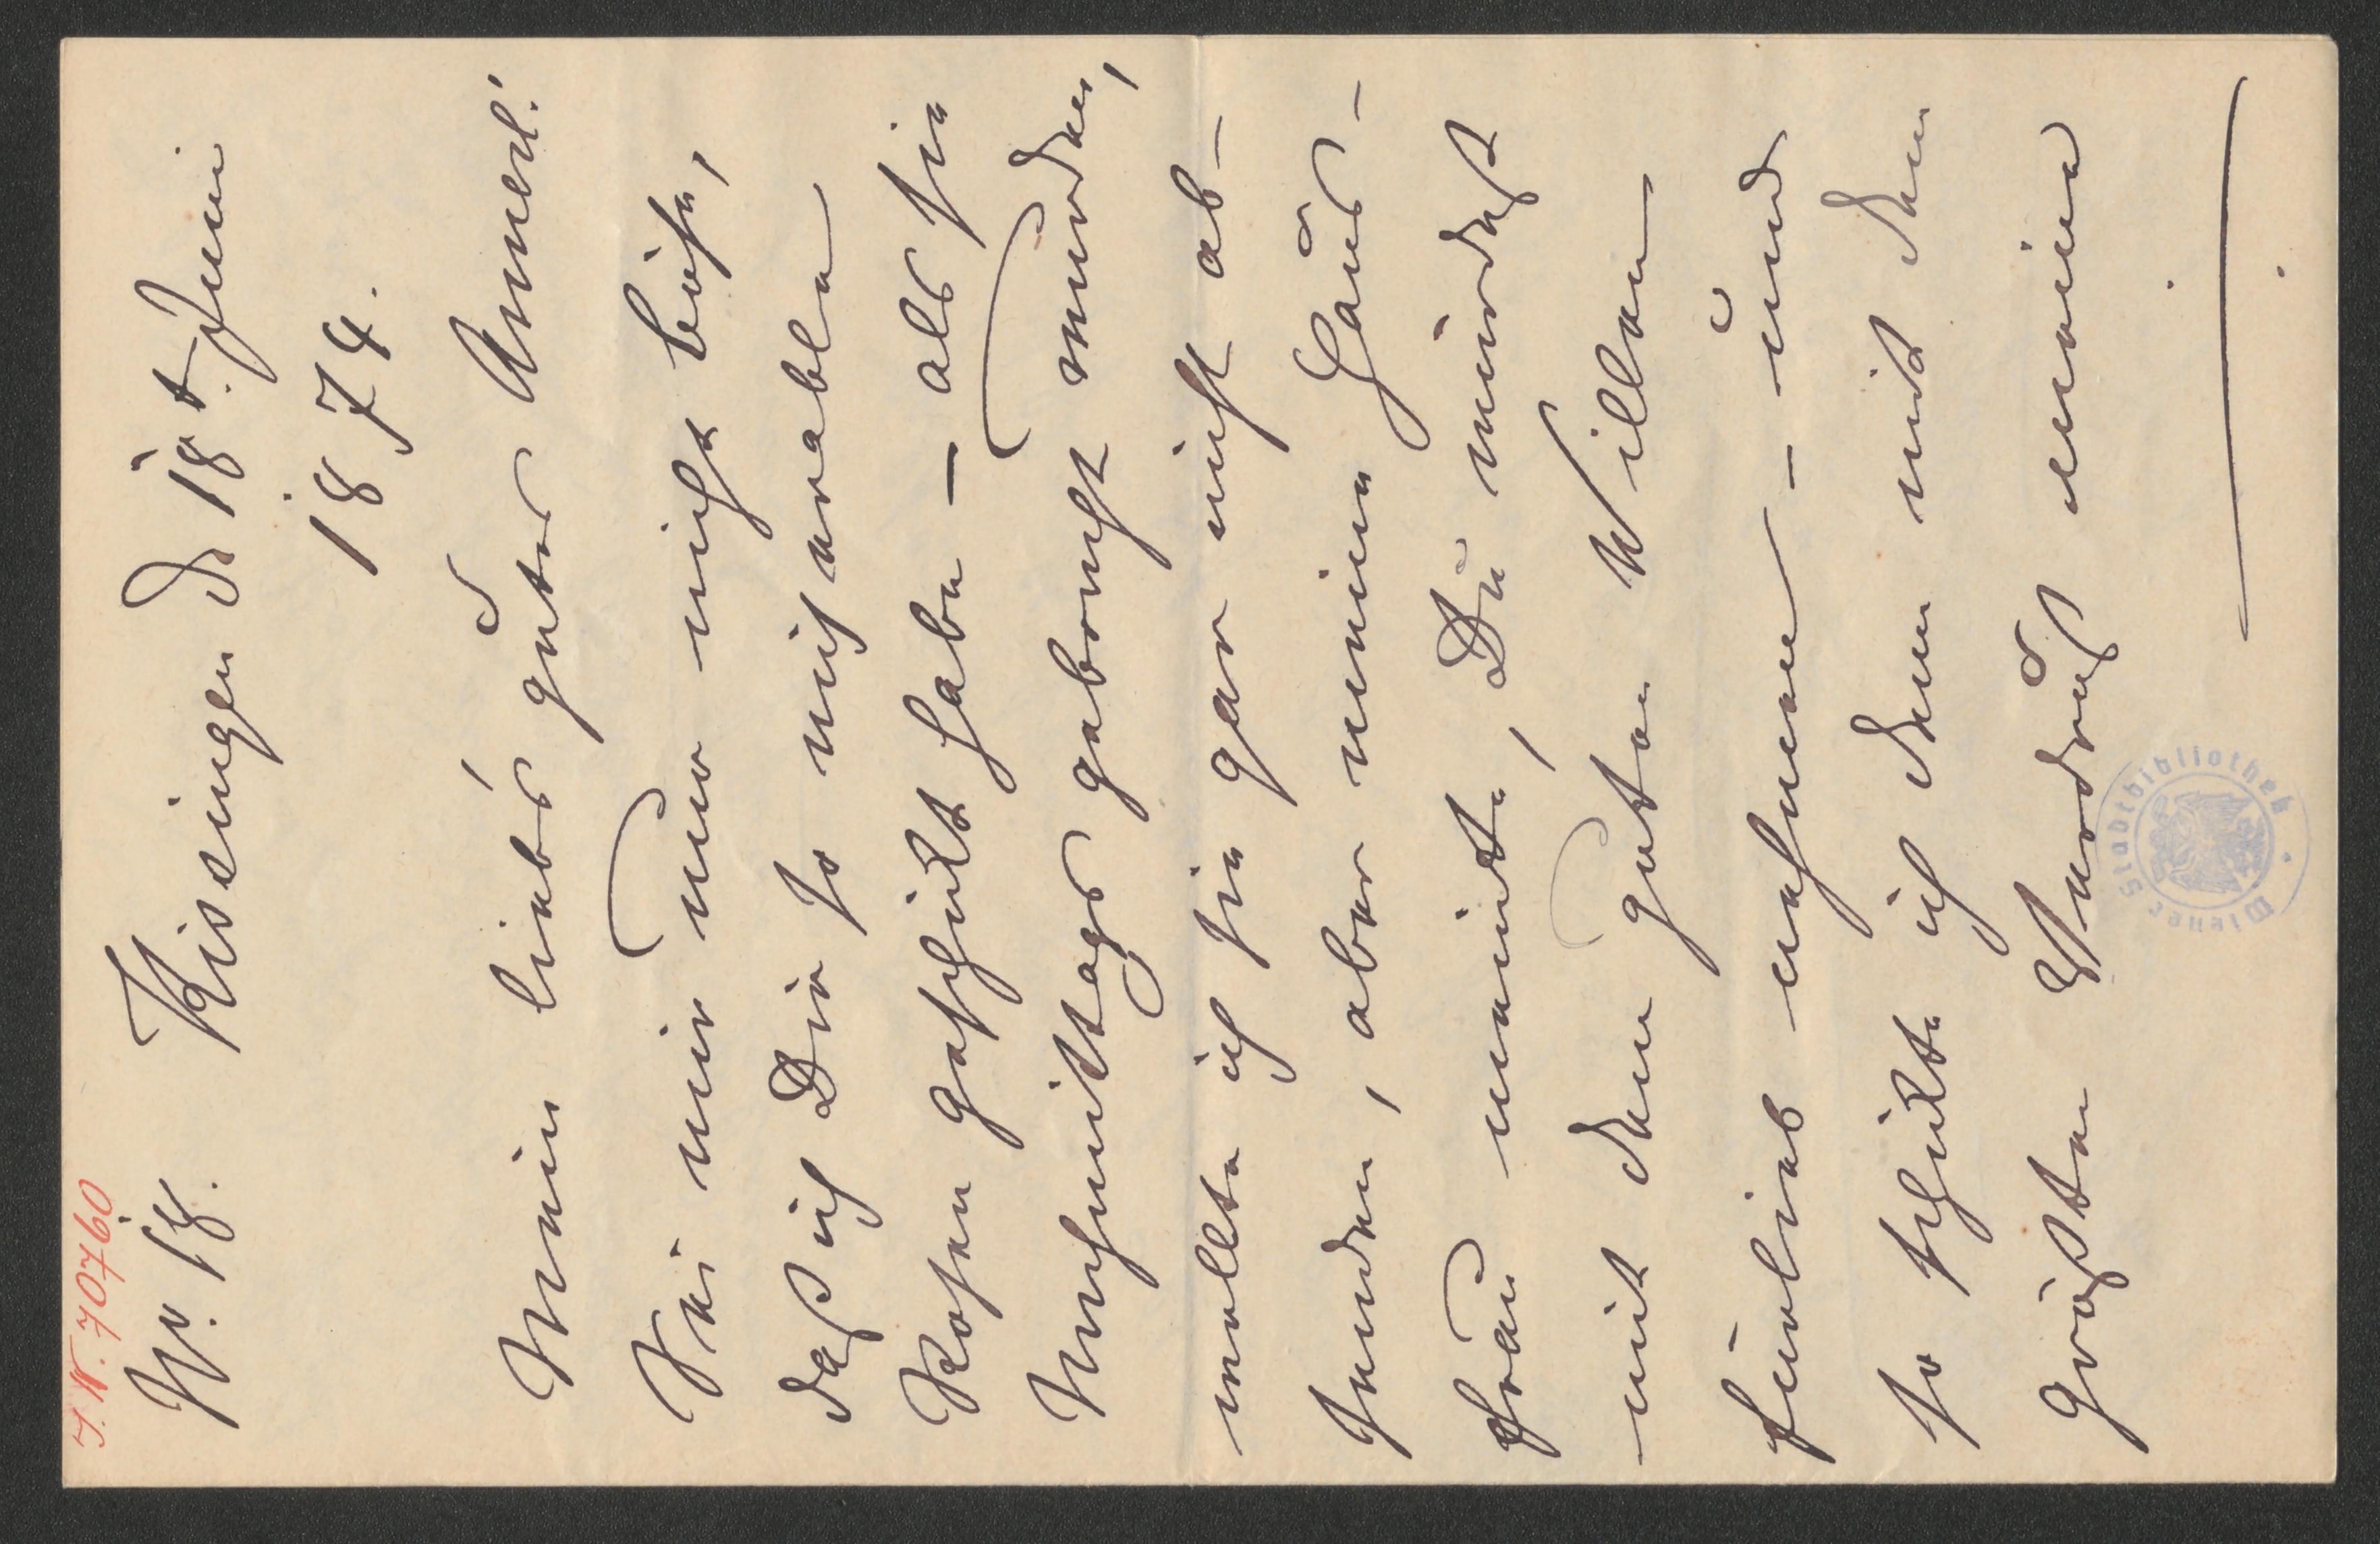 I.N. 70760
Nr. 18. Kissingen d 18t. Juni
1874.
Mein liebes gutes Annerl!
Sei mir nur nicht böse,
daß ich Dir so miserable
Rosen geschikt habe – als sie
Nachmittags gebracht wurden,
wollte ich sie gar nicht ab-
senden, aber meine Haus-
frau meinte, Du würdest
mit dem guten Willen
fürlieb nehmen – und
so schikte ich denn mit dem
größten Verdruß meine
Wiener Stadtbibliothek